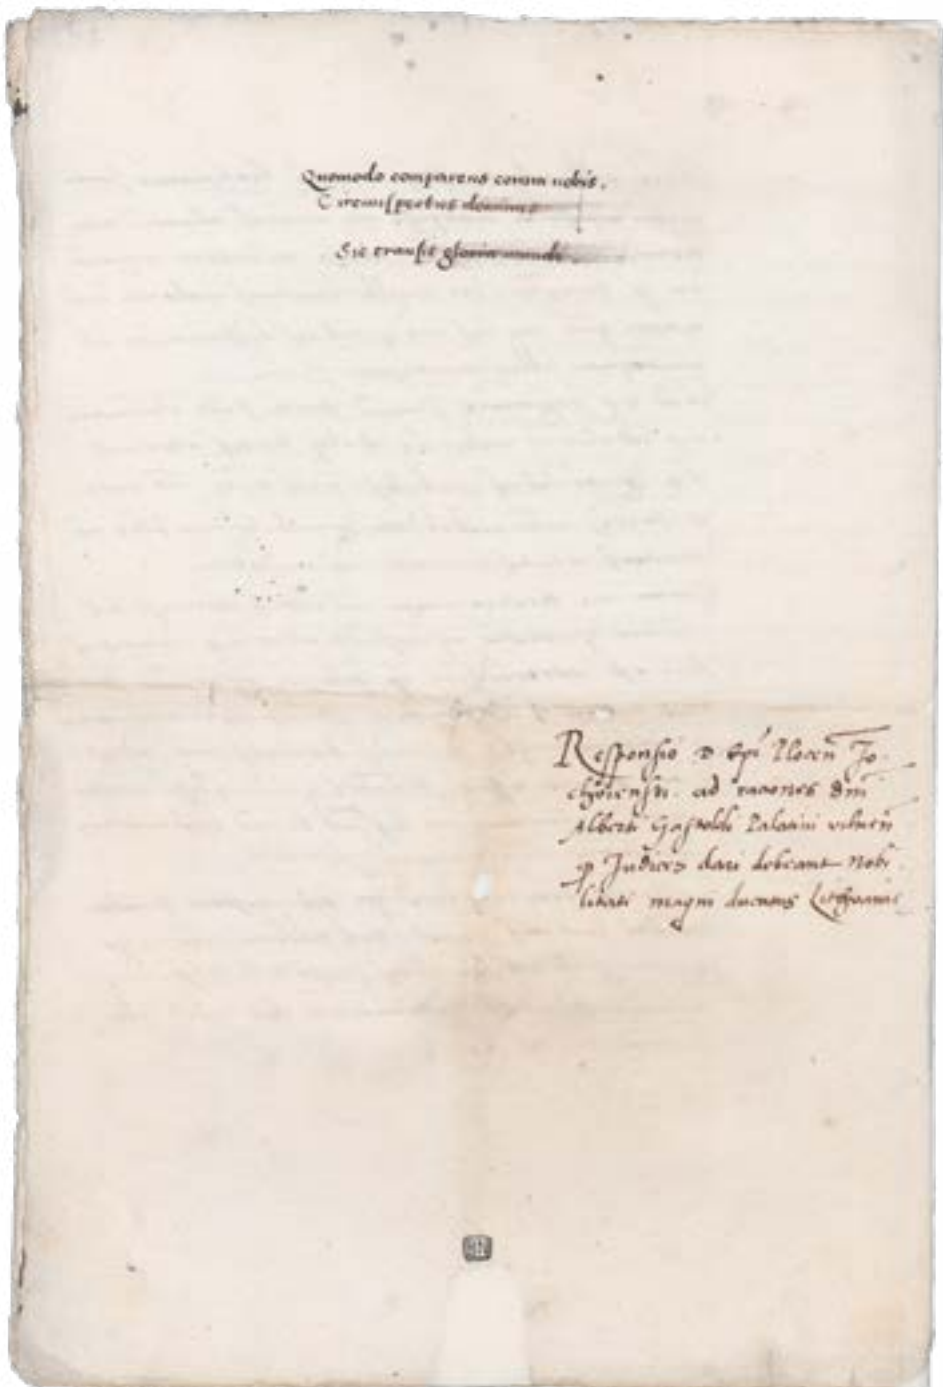 Quomodo comparens coram nobis.
Circumspectus dominus
Sic transit gloria mundi.
Responsio D Epi Plocen̄ Jo.
ad raciones Dni
Alberti Gastoldi Palatini vilnen̄
Judices dari debeant Nobi
litati magni ducatus Lithuanie